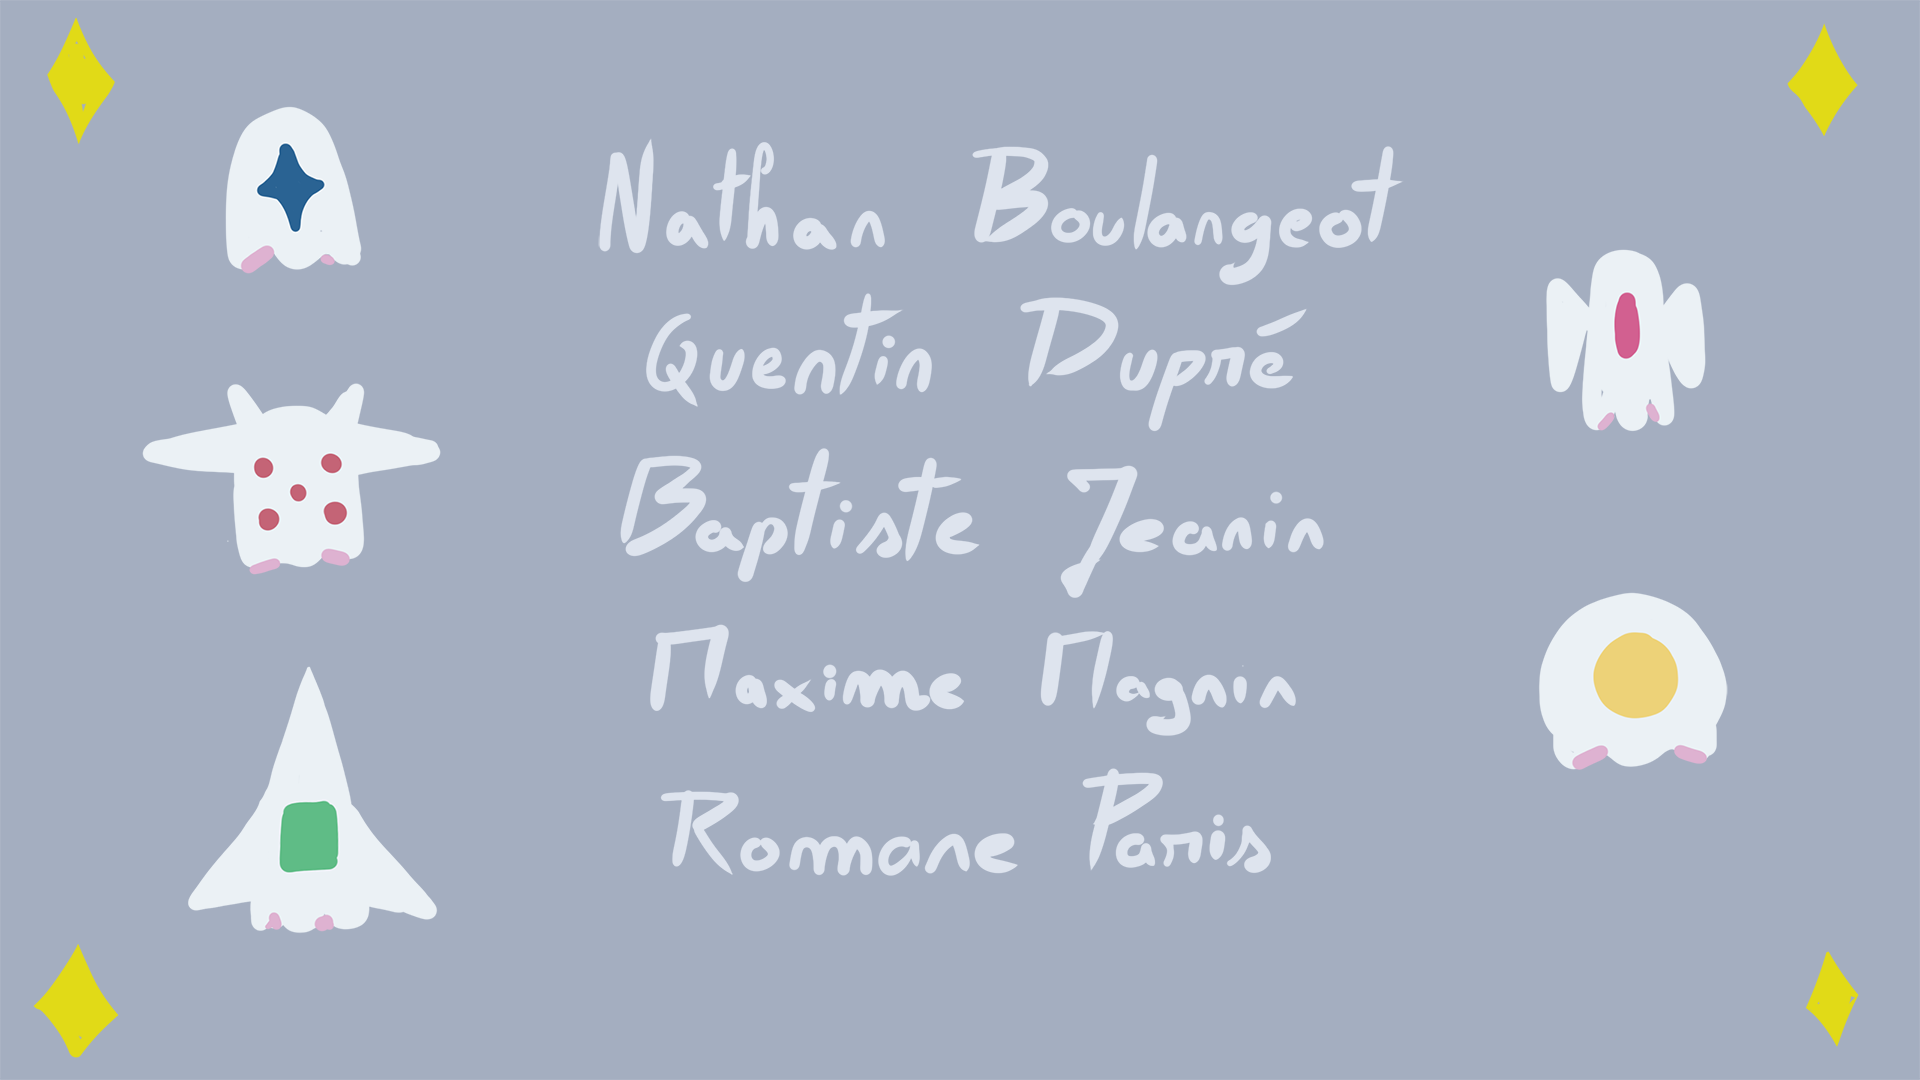 Nathan Boulangeot
Quentin Dupré
Baptiste Jeanin
Maxime Magnin
Romane Paris